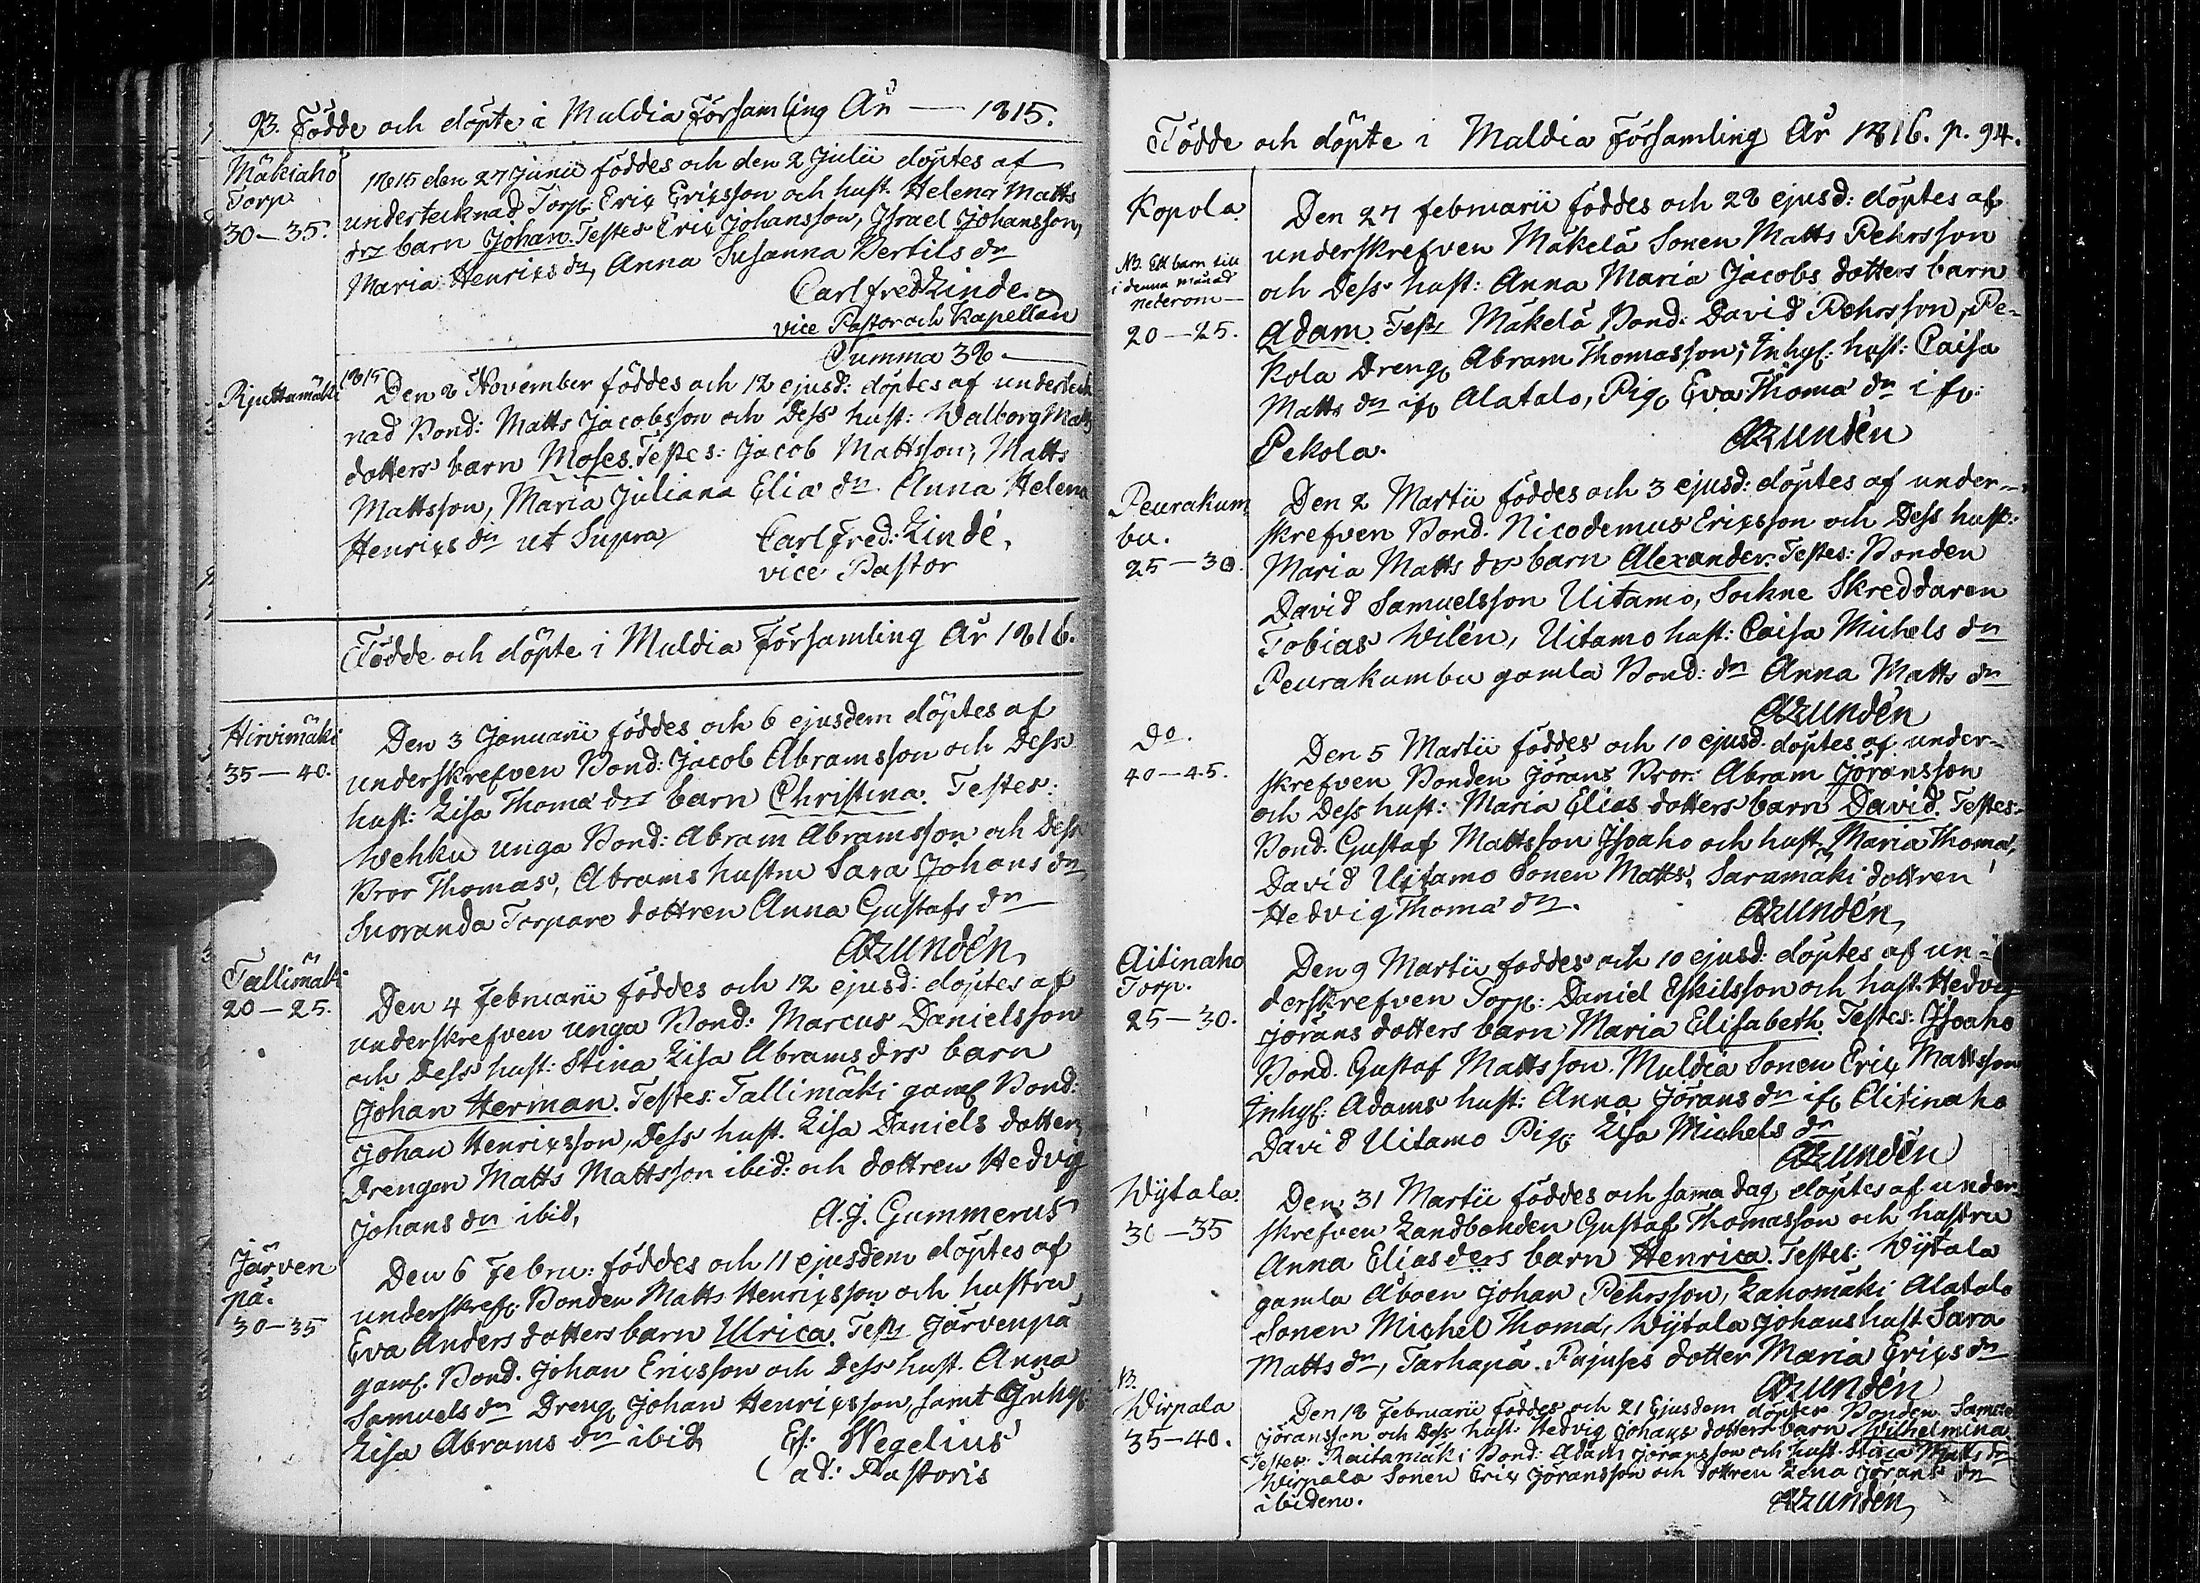 93. Födde och döpte i Muldia Församling År — 1815.
Mäkiaho
Torp
30—35.
1815 den 27 Junii föddes och den 2 Julii döptes af
undertecknad Torp: Eric Ericsson och hust. Helena Matts
drs barn Johan. Testes Eric Johansson, Israel Johansson,
Maria Henrics dr, Anna Susanna Bertils dr
Carl Fred Linde
vice Pastor och Kapellan
Summa 38.
1815
Den 8 November föddes och 12 ejusd: döptes af underteck
nad Bond: Matts Jacobsson och Dess hust: Walborg Matts
dotters barn Moses. Testes: Jacob Mattsson, Matts
Mattsson, Maria Juliana Elia dr Anna Helena
Henrics dr ut Supra
Carl Fred: Lindé.
vice Pastor
Födde och döpte i Muldia Församling År 1816.
Hirvimäki
35—40.
Den 3 Januarii föddes och 6 ejusdem döptes af
underskrefven Bond: Jacob Abramsson och Dess
hust: Lisa Thoma drs barn Christina. Testes:
Wehku unga Bond: Abram Abramsson och Dess
Bror Thomas, Abrams hustru Sara Johans dr
Suoranda Torpare dottren Anna Gustafs dr
Tallimäki
20—25.
Den 4 Februarii föddes och 12 ejusd: döptes af
underskrefven unga Bond: Marcus Danielsson
och Dess hust: Stina Lisa Abrams drs barn
Johan Herman. Testes: Tallimäki gaml Bond:
Johan Henricsson, Dess hust. Lisa Daniels dotter,
Drengen Matts Mattsson ibid: och dottren Hedvig
Johans dr ibid,
A. J. Gummerus
Järven
pä.
30—35
Den 6 Febru: föddes och 11 ejusdem döptes af
underskref: Bonden Matts Henricsson och hustru
Eva Anders dotters barn Ulrica. Test: Järvenpä
gaml. Bond. Johan Ericsson och Dess hust. Anna
Samuels dr Dreng Johan Henricsson, samt Inhys:
Lisa Abrams dr ibid
Es: Wegelius
ad: Pastoris
Födde och döpte i Maldia Församling År 1816. p. 94.
Kopola
NB. Ett barn till
i denna månad
neterom—
20—25.
Den 27 februarii föddes och 28 ejusd: döptes af
underskrefven Mäkelä Sonen Matts Pehrsson
och Dess hust: Anna Maria Jacobs dotters barn
Adam. Test: Mäkelä Bond: David Pehrsson, Pe-
kola Dreng Abram Thomasson, Inhys: hust: Caisa
Matts dr ifr Alatalo, Pig. Eva Thoma dr ifr:
Pekola.
Peurakum
bu.
25—30.
Den 2 Martii föddes och 3 ejusd: döptes af under-
skrefven Bond. Nicodemus Ericsson och Dess hust:
Maria Matts drs barn Alexander. Testes: Bonden
David Samuelsson Uitamo, Sockne Skreddaren
Tobias Wilén, Uitamo hust: Caisa Michels dr
Peurakumbu gamla Bond: dr Anna Matts dr
Do.
40—45.
Den 5 Martii föddes och 10 ejusd. döptes af under-
skrefven Bonden Jörans Bror: Abram Jöransson
och Dess hust: Maria Elias dotters barn David. Testes
Bond. Gustaf Mattsson Isoaho och hust. Maria Thoma,
David Uitamo Sonen Matts, Saramäki dottren
Hedvig Thoma dr.
Aitinaho
Torp.
25—30.
Den 9 Martii föddes och 10 ejusd. döptes af un-
derskrefven Torp: Daniel Eskilsson och hust. Hedvig
Jörans dotters barn Maria Elisabeth. Testes: Isoaho
Bond. Gustaf Mattsson. Muldia Sonen Eric Mattsson
Inhys: Adams hust: Anna Jörans dr ifr Aitinaho
David Uitamo Pig: Lisa Michels dr
Wÿtala
30—35
Den 31 Martii föddes och sama dag döptes af under
skrefven Landbonden Gustaf Thomasson och hustru
Anna Elias ders barn Henrica. Testes: Wÿtala
gamla Åboen Johan Pehrsson, Lahomäki Alatalo
Sonen Michel Thoma, Wÿtala Johans hust Sara
Matts dr, Tarhapä. dotter Maria Erics dr
Wirpala
35—40.
Den 18 Februarii föddes och 21 Ejusdem döptes Bonden Samuel
Jöransson och Dess hust: Hedvig Johans dotters barn Wilhelmina
Testes: Raitamäki Bond: Adam Jöransson och hust. Stina Matts dr
Wirpala Sonen Eric Jöransson och dottren Lena Jörans dr
ibidem.